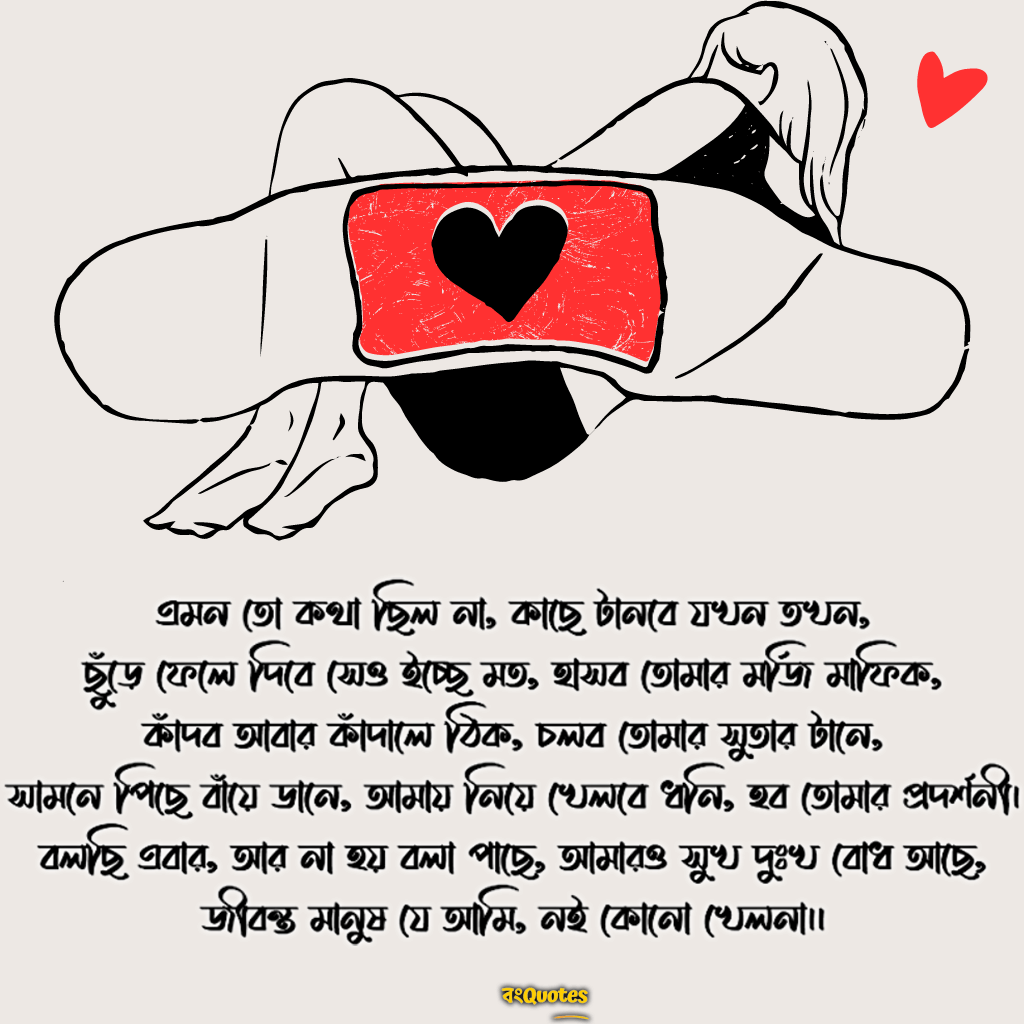 এমন তো কথা ছিল না, কাছে টানবে যখন তখন,
ছুঁড়ে ফেলে দিবে সেও ইচ্ছে মত, হাসব তোমার মর্জি মাফিক,
কাঁদব আবার কাঁদালে ঠিক, চলব তোমার সুতার টানে,
সামনে পিছে বাঁয়ে ডানে, আমায় নিয়ে খেলবে ধনি, হব তোমার প্রদর্শনী।
বলছি এবার, আর না হয় বলা পাছে, আমারও সুখ দুঃখ বোধ আছে,
জীবন্ত মানুষ যে আমি, নই কোনো খেলনা।।
বংQuotes